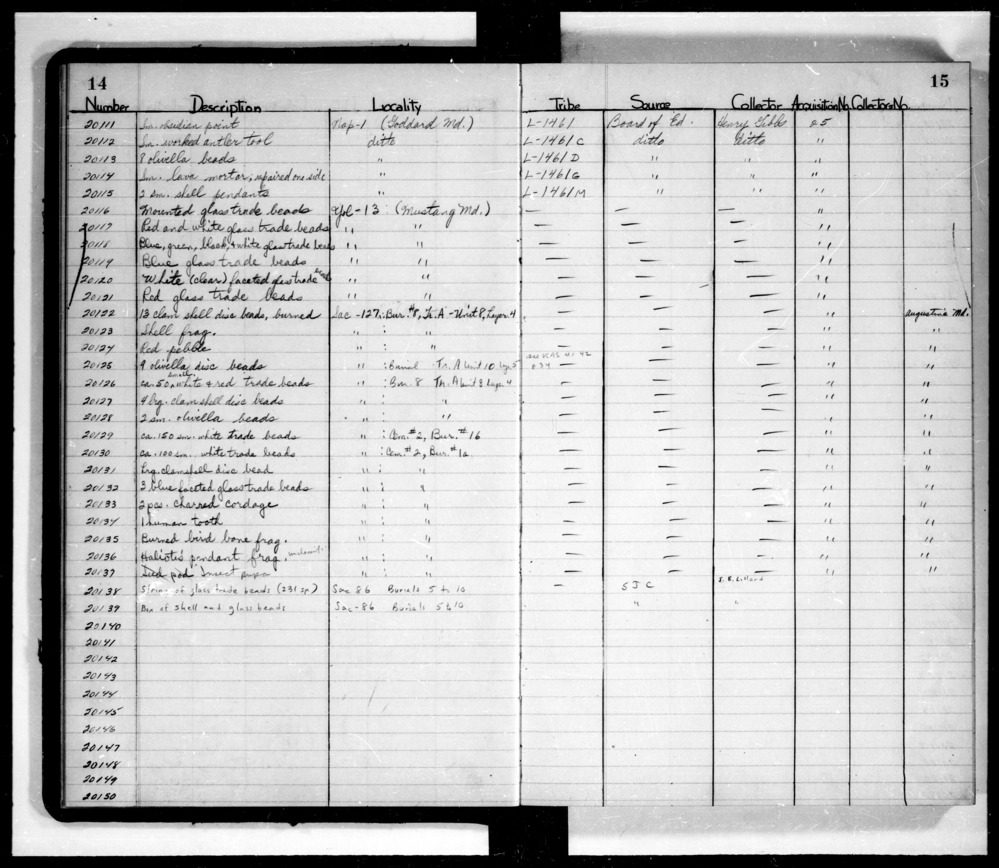 14 15
Number Description Locality Tribe Source Collector Acquisition No. Collectors No.
20111 Sm. obsidian point Nap-1 (Goddard Md.) L-1461 Board of Ed. Henry Gibbs 25
20112 Sm. worked antler tool ditto L-1461C ditto ditto "
20113 8 olivella beads " L-1461D " " "
20114 Sm. lava mortar, repaired one side " L-1461G " " "
20115 2 sm. shell pendants " L-1461M " " "
20116 Mounted glass trade beads -13 (Mustang Md.) — — — "
20117 Red and white glass trade beads " " — — — "
20118 Blue, green, black, & white glass trade beads " " — — — "
20119 Blue glass trade beads " " — — — "
20120 White (clear) faceted glass trade beads " " — — — "
20121 Red glass trade beads " " — — — "
20122 13 clam shell disc beads, burned Sac-127: Bur. #8, Tr. A - Unit 8, Layer 4 — — — " Augustine Md.
20123 Shell frag. " : " — — — " "
20124 Red pebble " : " — — — " "
20125 9 olivella disc beads " : Burial Tr. A Unit 10 Layer 5 — — — " "
20126 ca. 50 small white & red trade beads " : Bur. 8 Tr. A Unit 8 Layer 4 — — — " "
20127 4 lrg. clam shell disc beads " : " — — — " "
20128 2 sm. olivella beads " : " — — — " "
20129 ca. 150 sm. white trade beads " : Cem. #2, Bur. #16 — — — " "
20130 ca. 100 sm. white trade beads " : Cem. #2, Bur. #12 — — — " "
20131 Lrg. clamshell disc bead " : " — — — " "
20132 3 blue faceted glass trade beads " : " — — — " "
20133 2 pcs. charred cordage " : " — — — " "
20134 1 human tooth " : " — — — " "
20135 Burned bird bone frag. " : " — — — " "
20136 Haliotis pendant frag. " : " — — — " "
20137 Seed pod Insect pupa " : " — — — " "
20138 String of glass trade beads (231 sp.) Sac 86 Burials 5 to 10 — SJC J. B. Lillard
20139 Box of shell and glass beads Sac-86 Burials 5 to 10 " "
20140
20141
20142
20143
20144
20145
20146
20147
20148
20149
20150